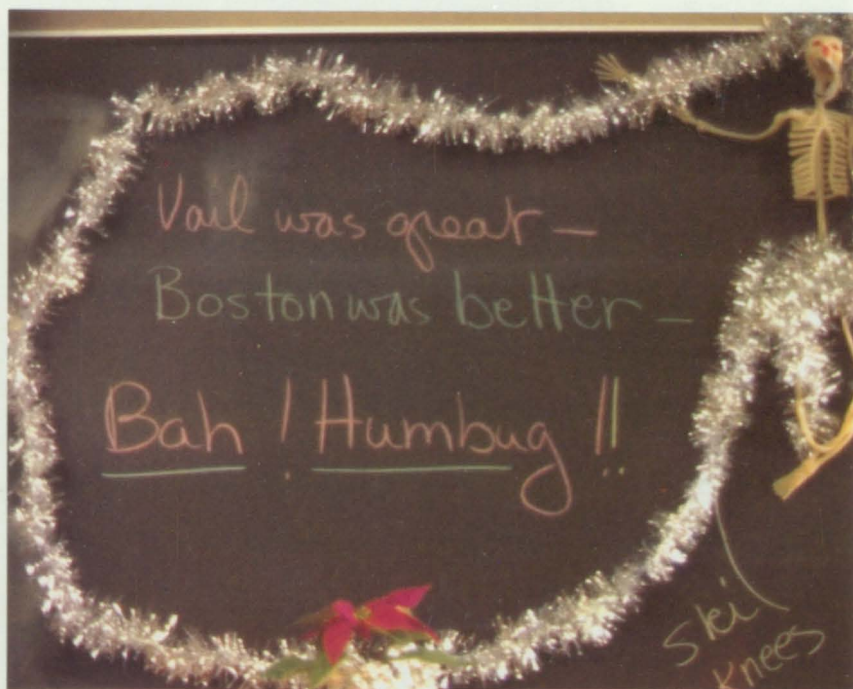 Vail was great –
Boston was better –
Bah ! Humbug !!
Ski
Knees